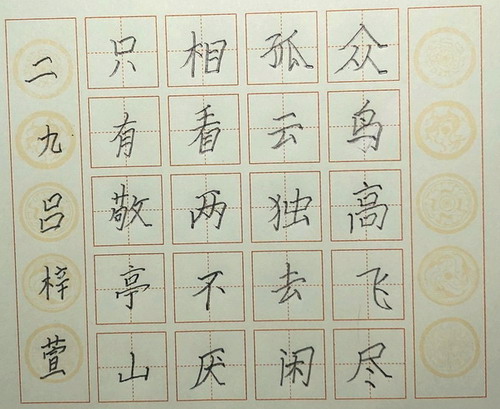 众鸟高飞尽
孤云独去闲
相看两不厌
只有敬亭山
二九吕梓萱